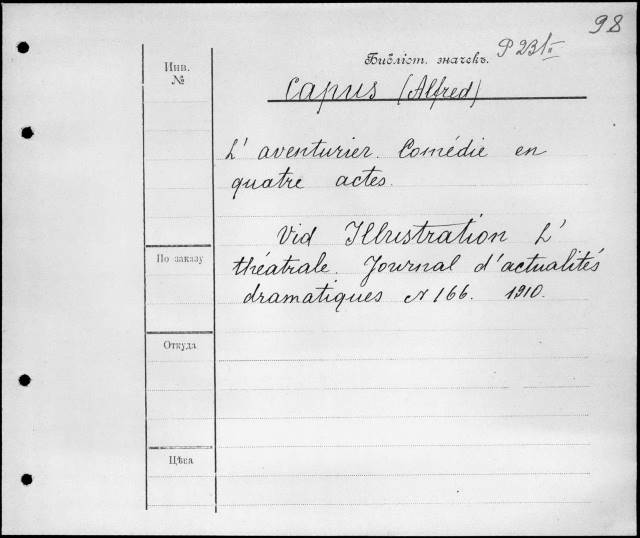 98
Р 231 II
Библіот. значекъ.
Инв.
№
Capus (Alfred)
L' aventurier. Comédie en
quatre actes.
Vid Illustration L'
По заказу
théatrale. Journal d'actualités
dramatiques № 166. 1910.
Откуда
Цѣна